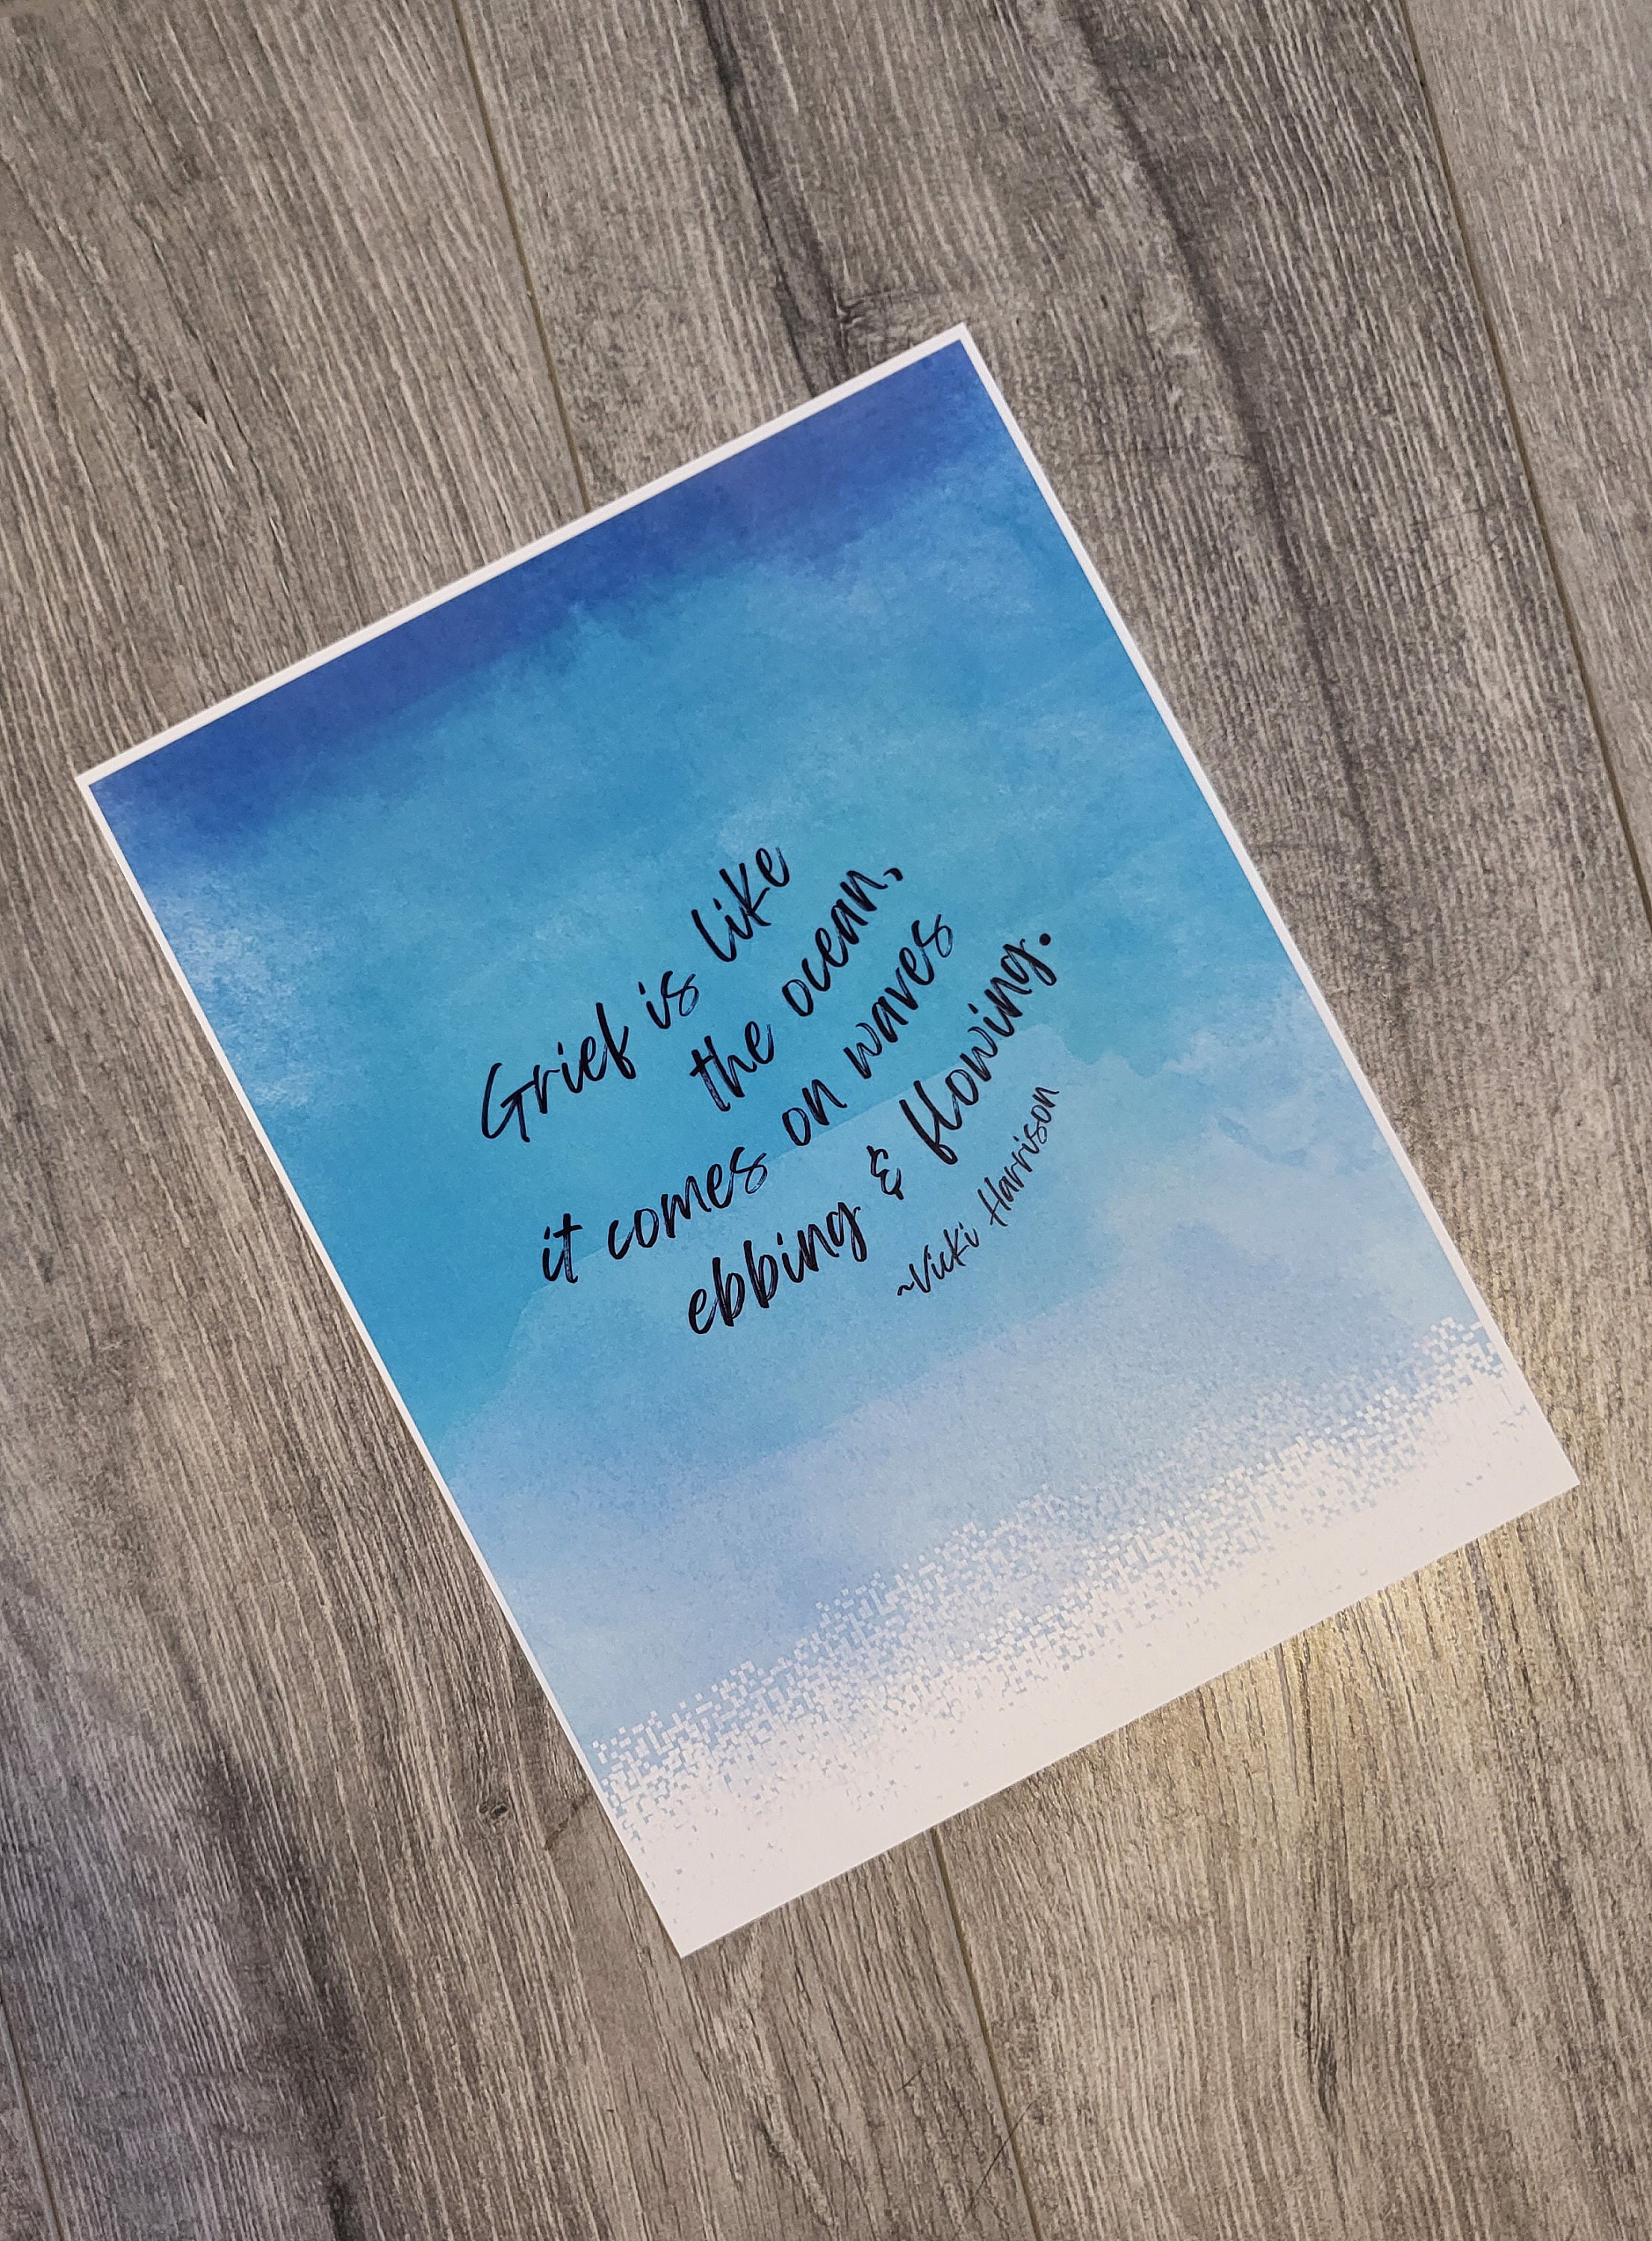 Grief is like
the ocean,
it comes on waves
ebbing & flowing.
~Vicki Harrison